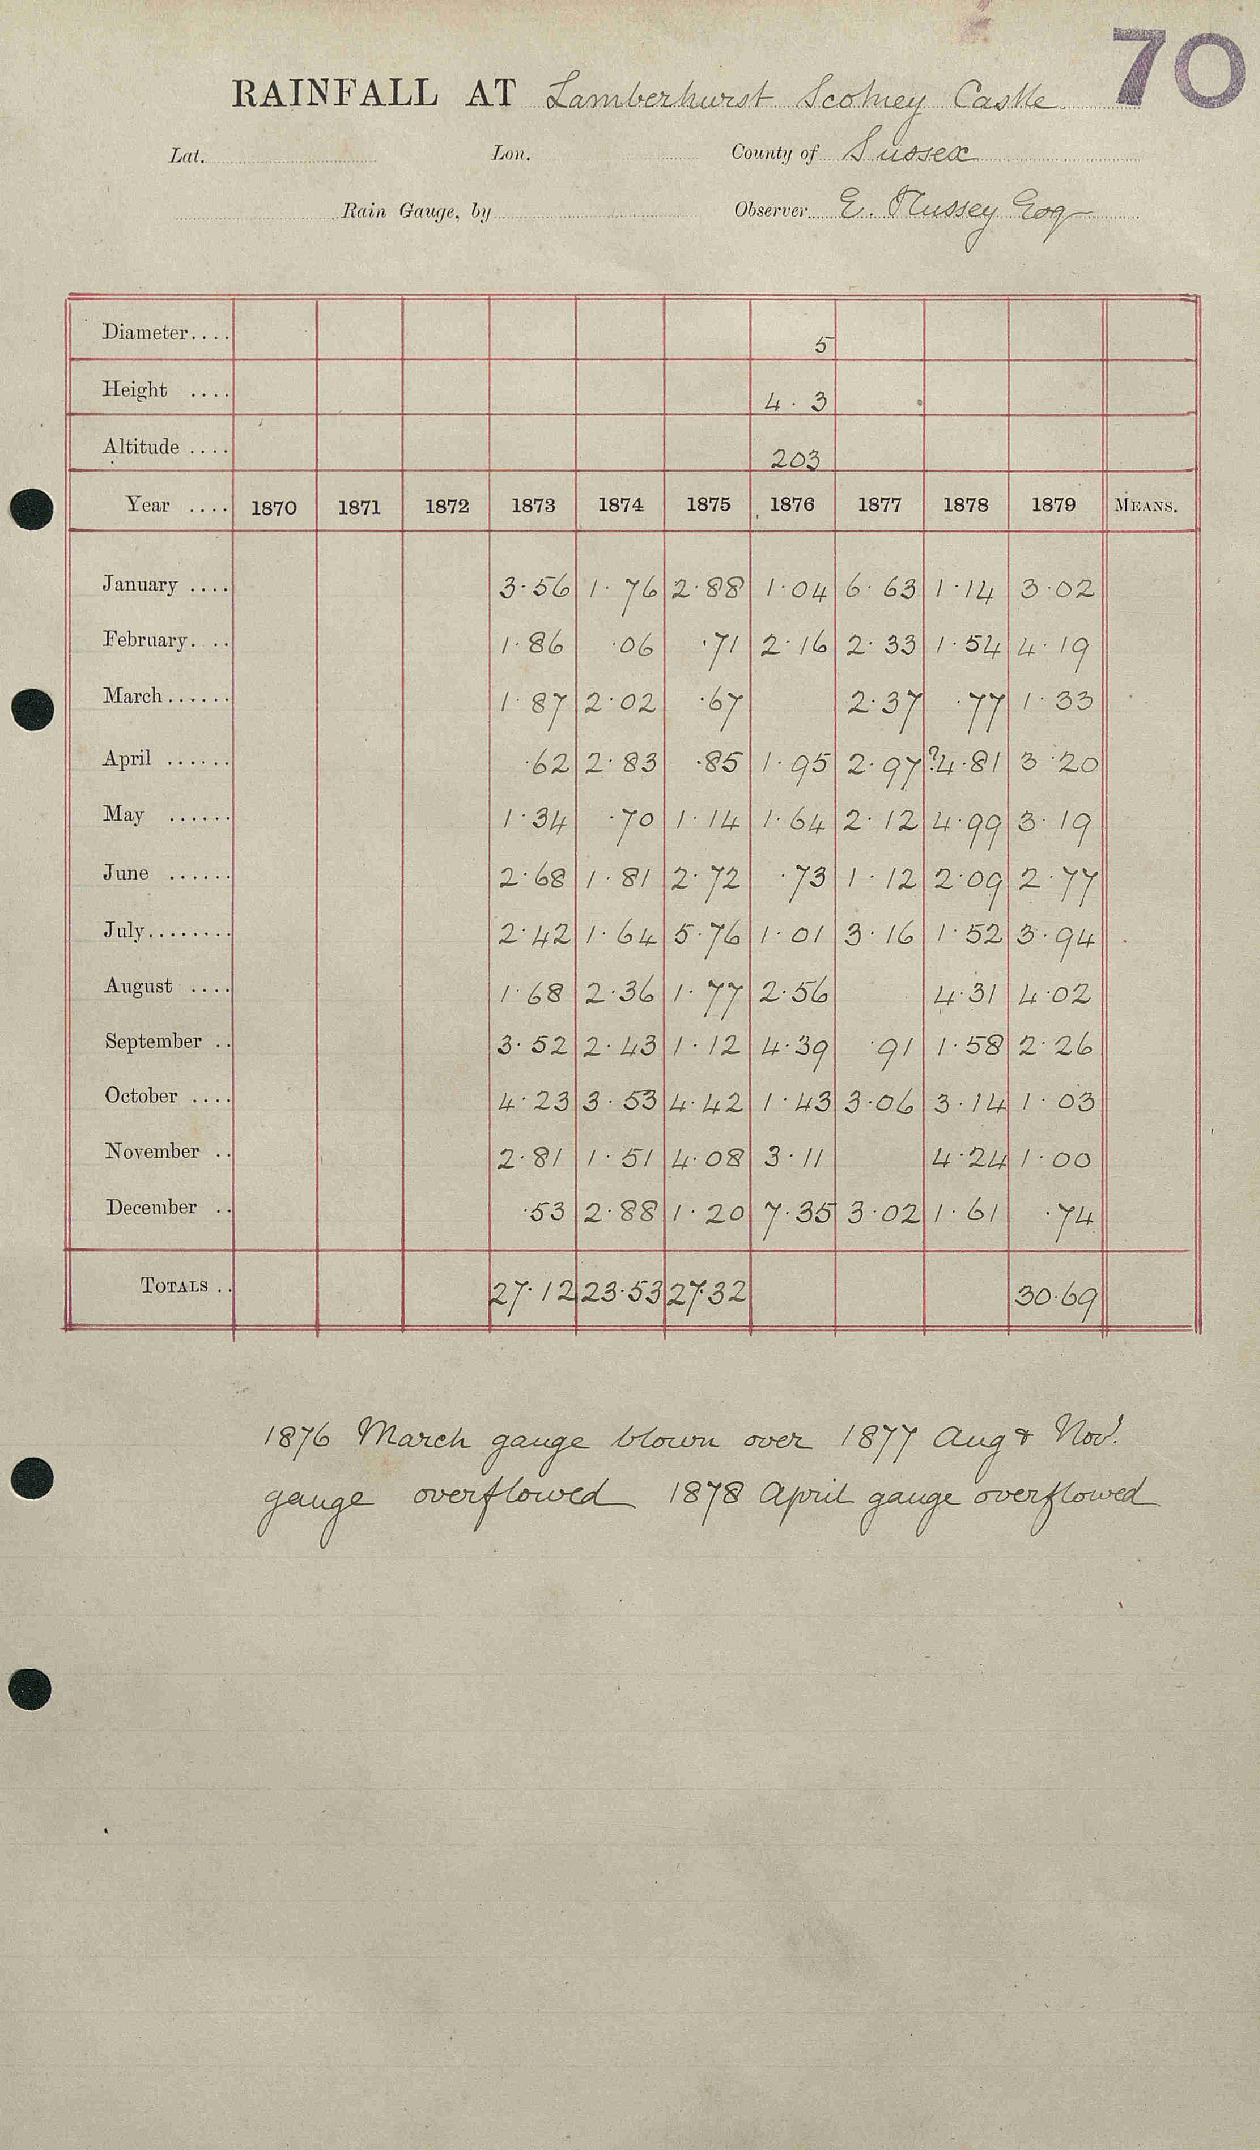 70
RAINFALL AT Lamberhurst Scotney Castle
Lat. Lon. County of Sussex
Rain Gauge, by Observer E. Hussey Esq
Diameter.... 5
Height .... 4.3
Altitude .... 203
Year .... 1870 1871 1872 1873 1874 1875 1876 1877 1878 1879 MEANS.
January .... 3.56 1.76 2.88 1.04 6.63 1.14 3.02
February. .. 1.86 .06 .71 2.16 2.33 1.54 4.19
March...... 1.87 2.02 .67 2.37 .77 1.33
April ...... .62 2.83 .85 1.95 2.97 ?4.81 3.20
May ...... 1.34 .70 1.14 1.64 2.12 4.99 3.19
June ...... 2.68 1.81 2.72 .73 1.12 2.09 2.77
July........ 2.42 1.64 5.76 1.01 3.16 1.52 3.94
August .... 1.68 2.36 1.77 2.56 4.31 4.02
September .. 3.52 2.43 1.12 4.39 .91 1.58 2.26
October .... 4.23 3.53 4.42 1.43 3.06 3.14 1.03
November .. 2.81 1.51 4.08 3.11 4.24 1.00
December .. .53 2.88 1.20 7.35 3.02 1.61 .74
TOTALS .. 27.12 23.53 27.32 30.69
1876 March gauge blown over 1877 Aug & Nov.
gauge overflowed 1878 April gauge overflowed